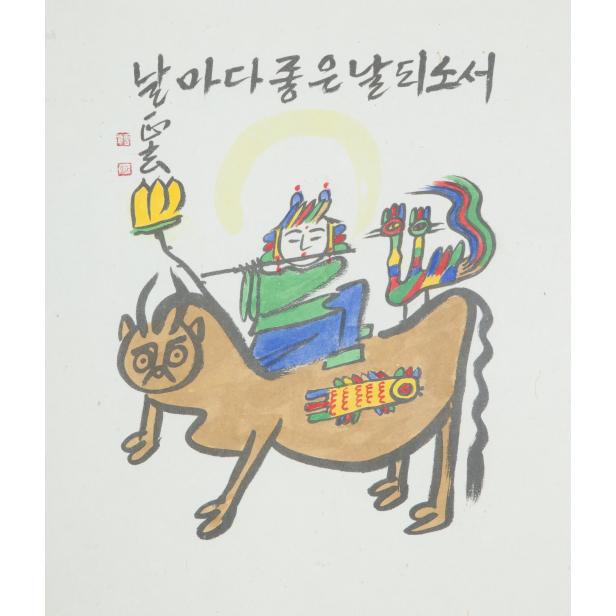 날마다 좋은 날 되소서